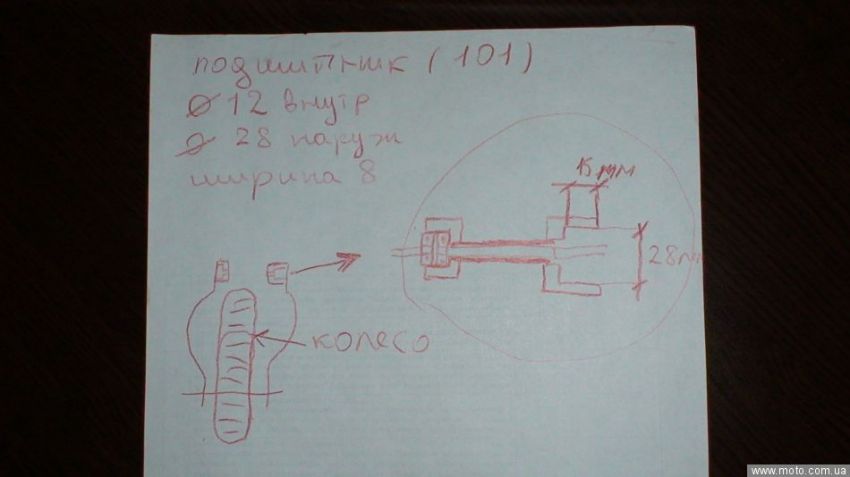 подшипник (101)
⌀ 12 внутр
⌀ 28 наруж
ширина 8
15 мм
28мм
колесо
www.moto.com.ua